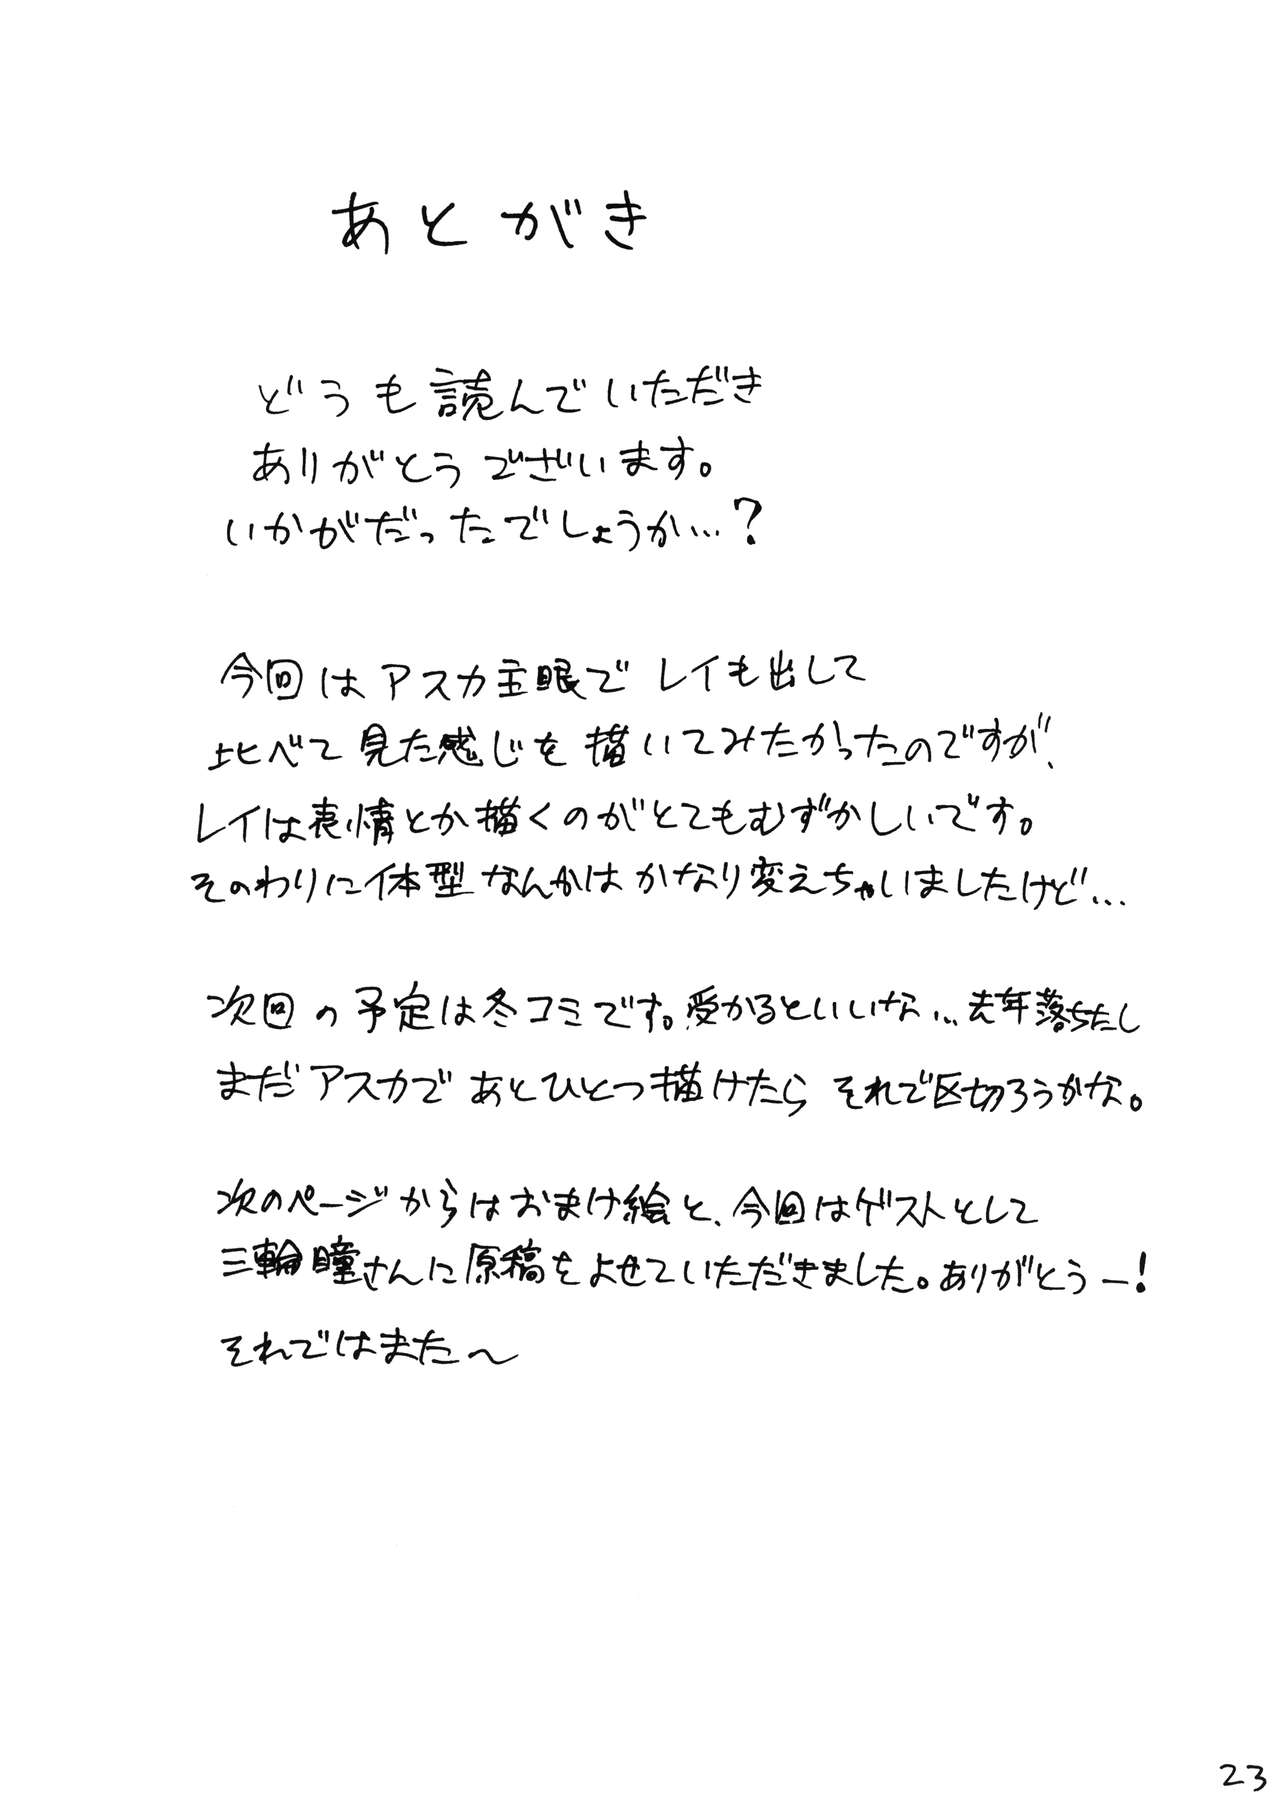 あとがき
どうも読んでいただき
ありがとうございます。
いかがだったでしょうか…？
今回はアスカ主眼でレイも出して
比べて見た感じを描いてみたかったのですが、
レイは表情とか描くのがとてもむずかしいです。
そのわりに体型なんかはかなり変えちゃいましたけど…
次回の予定は冬コミです。受かるといいな…去年落ちたし
まだアスカであとひとつ描けたらそれで区切ろうかな。
次のページからはおまけ絵と、今回はゲストとして
三輪瞳さんに原稿をよせていただきました。ありがとうー！
それではまた〜
23